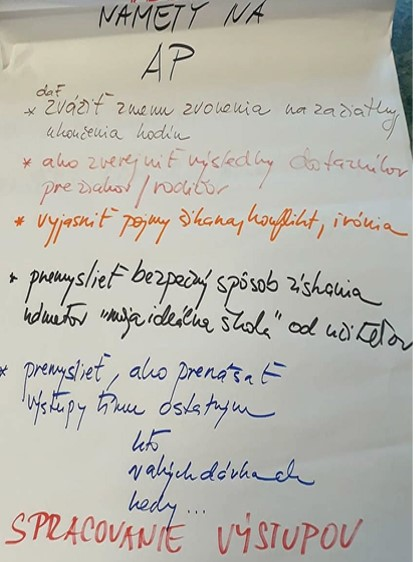 NÁMETY NA
AP
dať
* zvážiť zmenu zvonenia na začiatky
ukončenia hodín
* ako zverejniť výsledky dotazníkov
pre žiakov/rodičov
* vyjasniť pojmy šikana, konflikt, irónia
* premyslieť bezpečný spôsob získania
námetov "moja ideálna škola" od učiteľov
* premyslieť, ako prenášať
výstupy tímu ostatným
kto
v akých dávkach
kedy...
SPRACOVANIE VÝSTUPOV